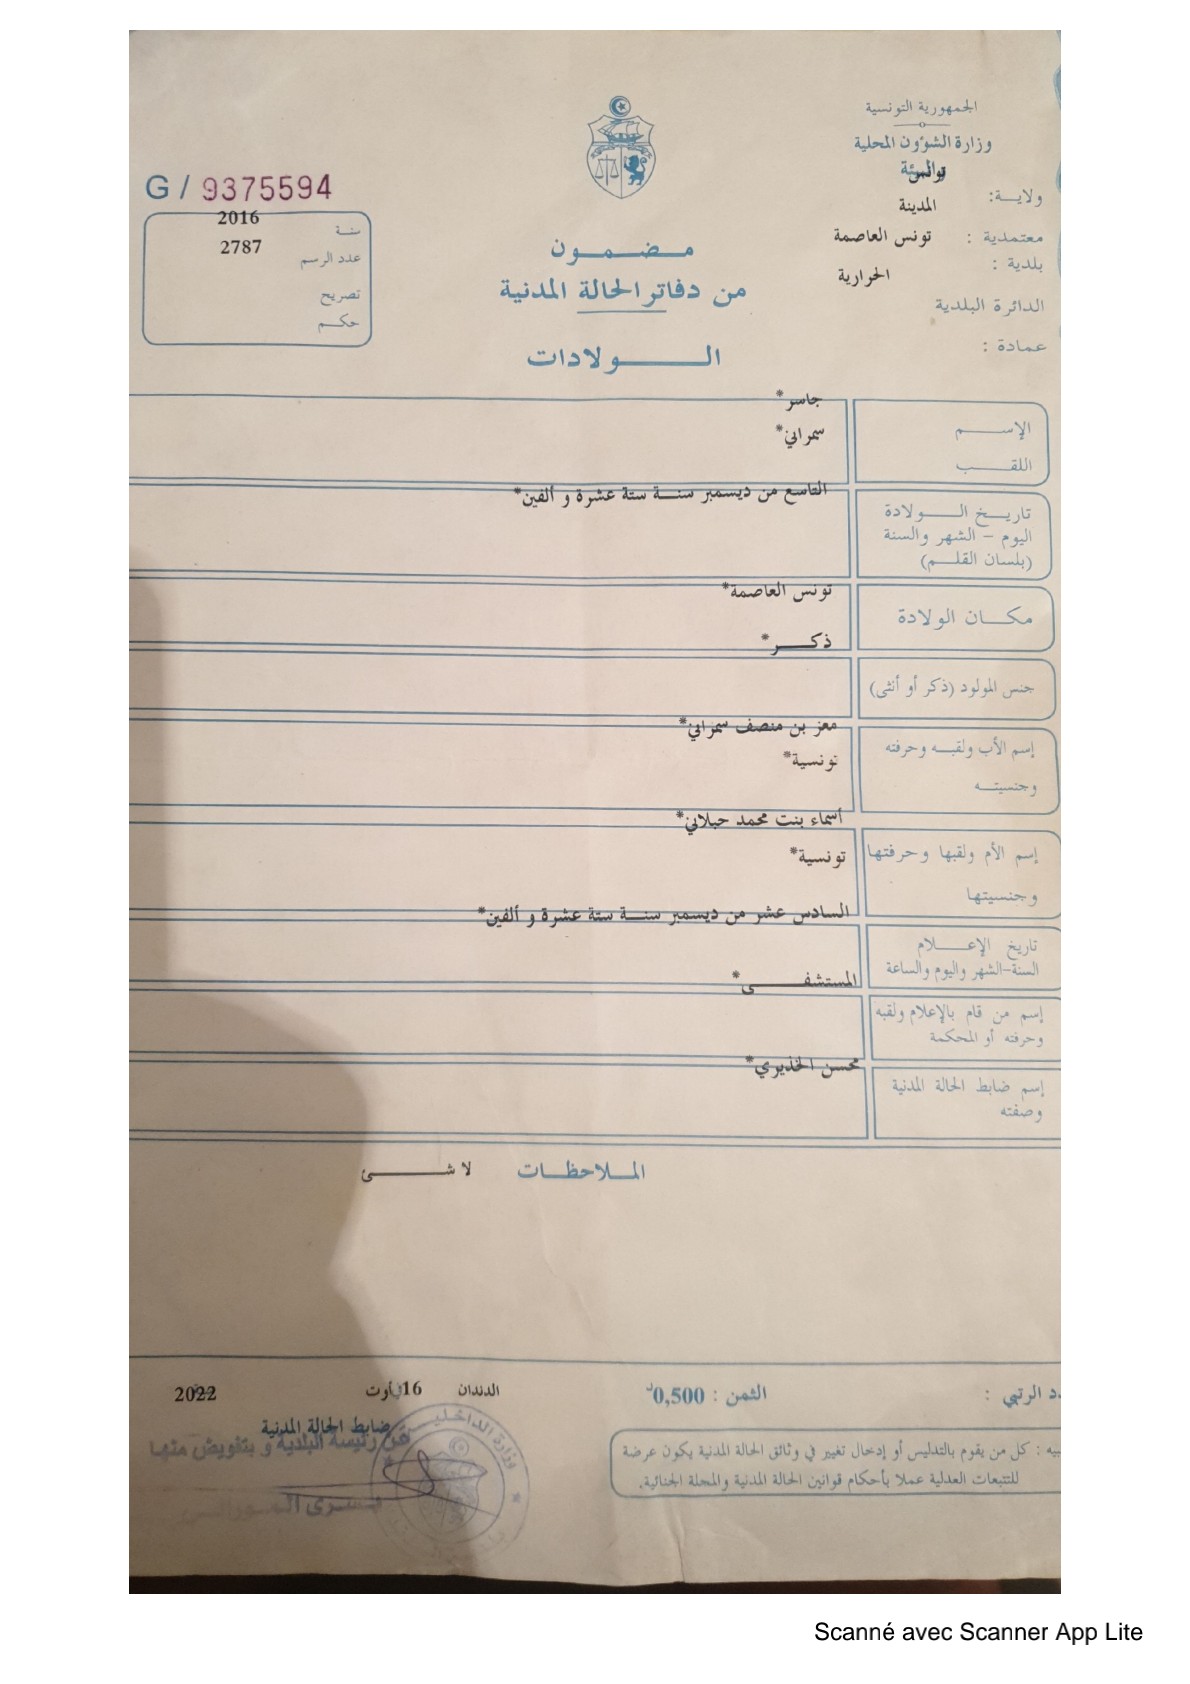 الجمهورية التونسية
وزارة الشؤون المحلية
والبيئة
تونس
ولاية:
المدينة
معتمدية :
تونس العاصمة
بلدية :
الحرارية
الدائرة البلدية
عمادة :
G / 9375594
سنة 2016
عدد الرسم 2787
تصريح
حكم
مضمون
من دفاتر الحالة المدنية
الولادات
الإسم
جاسر*
اللقب
سمراني*
تاريخ الولادة
اليوم - الشهر والسنة
(بلسان القلم)
التاسع من ديسمبر سنة ستة عشرة و ألفين*
مكان الولادة
تونس العاصمة*
جنس المولود (ذكر أو أنثى)
ذكر*
إسم الأب ولقبه وحرفته
وجنسيته
معز بن منصف سمراني*
تونسية*
إسم الأم ولقبها وحرفتها
وجنسيتها
أسماء بنت محمد حبلاني*
تونسية*
تاريخ الإعلام
السنة-الشهر واليوم والساعة
السادس عشر من ديسمبر سنة ستة عشرة و ألفين*
إسم من قام بالإعلام ولقبه
وحرفته أو المحكمة
المستشفى*
إسم ضابط الحالة المدنية
وصفته
محسن الخذيري*
الملاحظات لا شئ
دد الرتبي :
الثمن : 0,500د
الدندان 16 أوت 2022
بيه : كل من يقوم بالتدليس أو إدخال تغيير في وثائق الحالة المدنية يكون عرضة
للتتبعات العدلية عملا بأحكام قوانين الحالة المدنية والمجلة الجنائية.
ضابط الحالة المدنية
عن رئيسة البلدية و بتفويض منها
وزارة الداخلية
Scanné avec Scanner App Lite